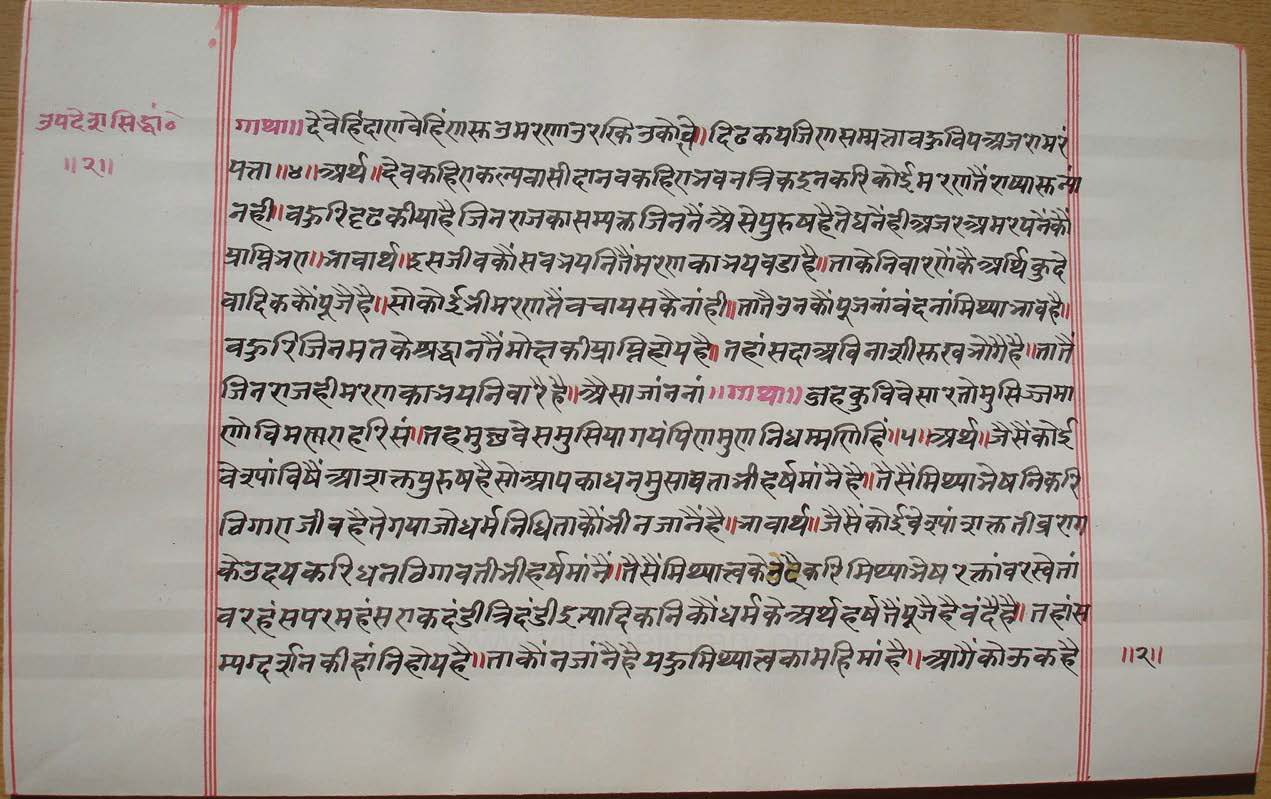 उपदेशसिद्धां०
॥२॥
गाथा॥ देवेहिंदाणवेहिंणसुउमरणाउरस्किउकोवि॥ दिढकयजिणसम्मत्तावहुविपअजरामरं
पत्ता॥४॥ अर्थ॥ देवकहिएकल्पवासीदानवकहिएभवनत्रिकइनकरिकोईमरणतैंराष्यासुन्यां
नही॥ वहुरिदृढकीयाहैजिनराजकासम्यक्तजिननैंअैसेपुरुषहैतेघनैंहीअजरअमरपनेंकौं
प्राप्तिभए॥ भावार्थ॥ इसजीवकौंसवभयनितैंमरणकाभयवडाहै॥ ताकेनिवारणेंकैअर्थिकुदे
वादिककौंपूजैहै॥ सोकोईभीमरणतैंवचायसकैनांही॥ तातैंउनकौंपूजनांवंदनांमिथ्याभावहै॥
वहुरिजिनमतकेश्रद्धानतैंमोक्षकीप्राप्तिहोयहै॥ तहांसदाअविनाशीसुखभोगैहै॥ तातैं
जिनराजहीमरणकाभयनिवारैहै॥ अैसाजांननां॥ गाथा॥ जहकुविवेसारत्तोमुसिज्जमा
णोविमणएहरिसं॥ तहमुछवेसमुसियागयंपिणमुणनिधम्मणिहिं॥५॥ अर्थ॥ जैसैंकोई
वेश्यांविषैंआशक्तपुरुषहैसोआपकाधनमुसावताभीहर्षमांनैहै॥ तैसैंमिथ्याभेषनिकरि
ठिगाएजीवहैतेगयाजोधर्मनिधिताकौंभीनजानैंहै॥ भावार्थ॥ जैसैंकोईवेश्यांशक्ततीव्रराग
केउदयकरिधनठिगावतीभीहर्षमांनैं॥ तैसैंमिथ्यात्वकेउदैकरिमिथ्याभेषरक्तांवरस्वेतां
वरहंसपरमहंसएकदंडीत्रिदंडीइत्यादिकनिकौंधर्मकेअर्थहर्षतैंपूजैहैवंदैहै॥ तहांस
म्यग्दर्शनकीहांनिहोयहै॥ ताकौंनजांनैहैयहुमिथ्यात्वकामहिमांहै॥ आगैंकोऊकहै
॥२॥